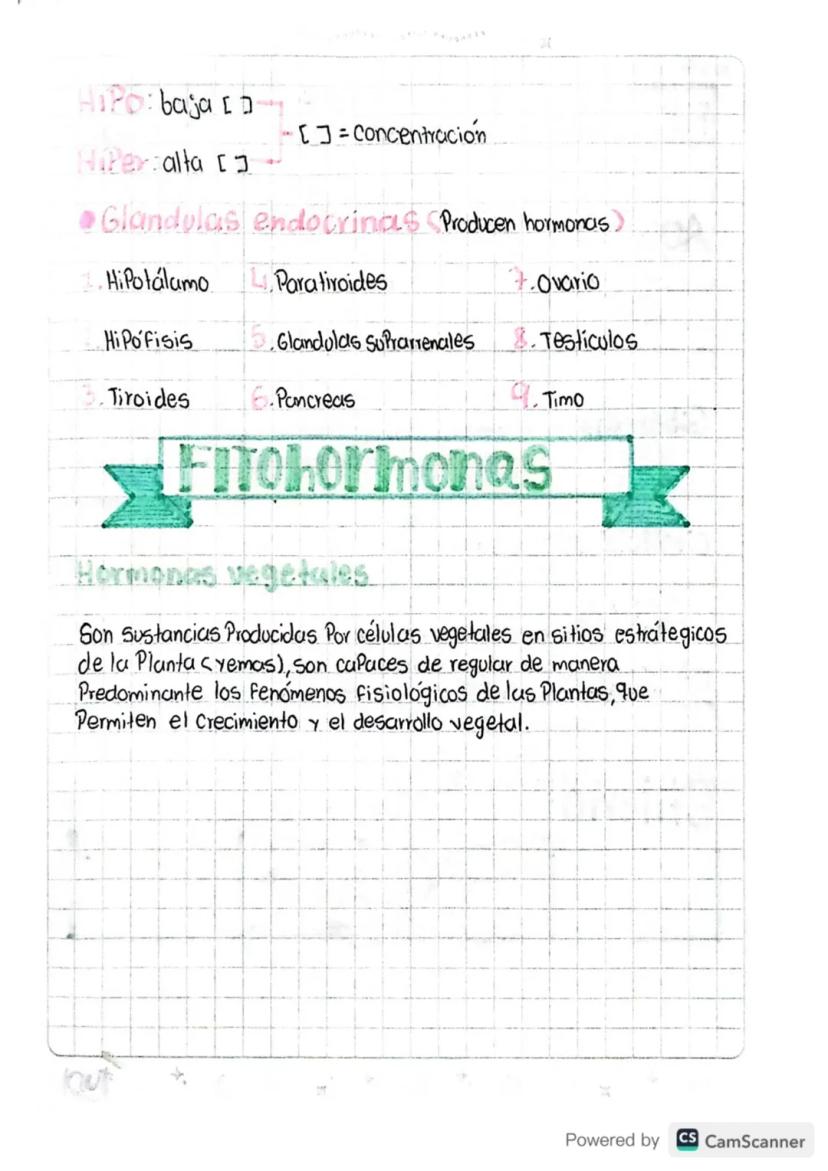 HiPo: baja [ ]
[ ] = Concentración
HiPer: alta [ ]
Glandulas endocrinas (Producen hormonas)
1. HiPotálamo 4. Paratiroides 7. Ovario
HiPófisis 5. Glandulas Suprarrenales 8. Testículos
3. Tiroides 6. Pancreas 9. Timo
Fitohormonas
Hormonas vegetales
Son Sustancias Producidas Por células vegetales en sitios estrátegicos
de la Planta (yemas), son caPaces de regular de manera
Predominante los fenómenos fisiológicos de las Plantas, que
Permiten el Crecimiento y el desarrollo vegetal.
Powered by CS CamScanner